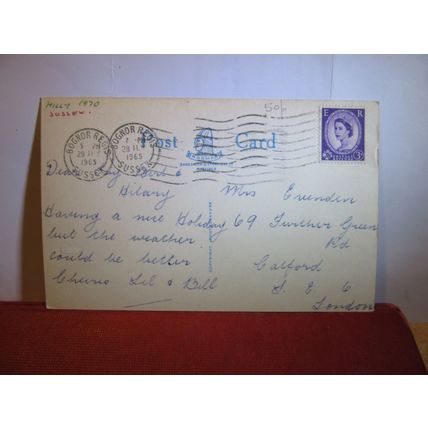 HILLY 1970
SUSSEX.
50p
BOGNOR REGIS
SUSSEX
1965
BOGNOR REGIS
SUSSEX
1965
Post Card
E R
POSTAGE REVENUE
3D
Dear
Hilary
Having a nice Holiday
but the weather
could be better
Cheerio Lil & Bill
Mrs Evenden
69 Further Green
Rd
Catford
S. E. 6
London